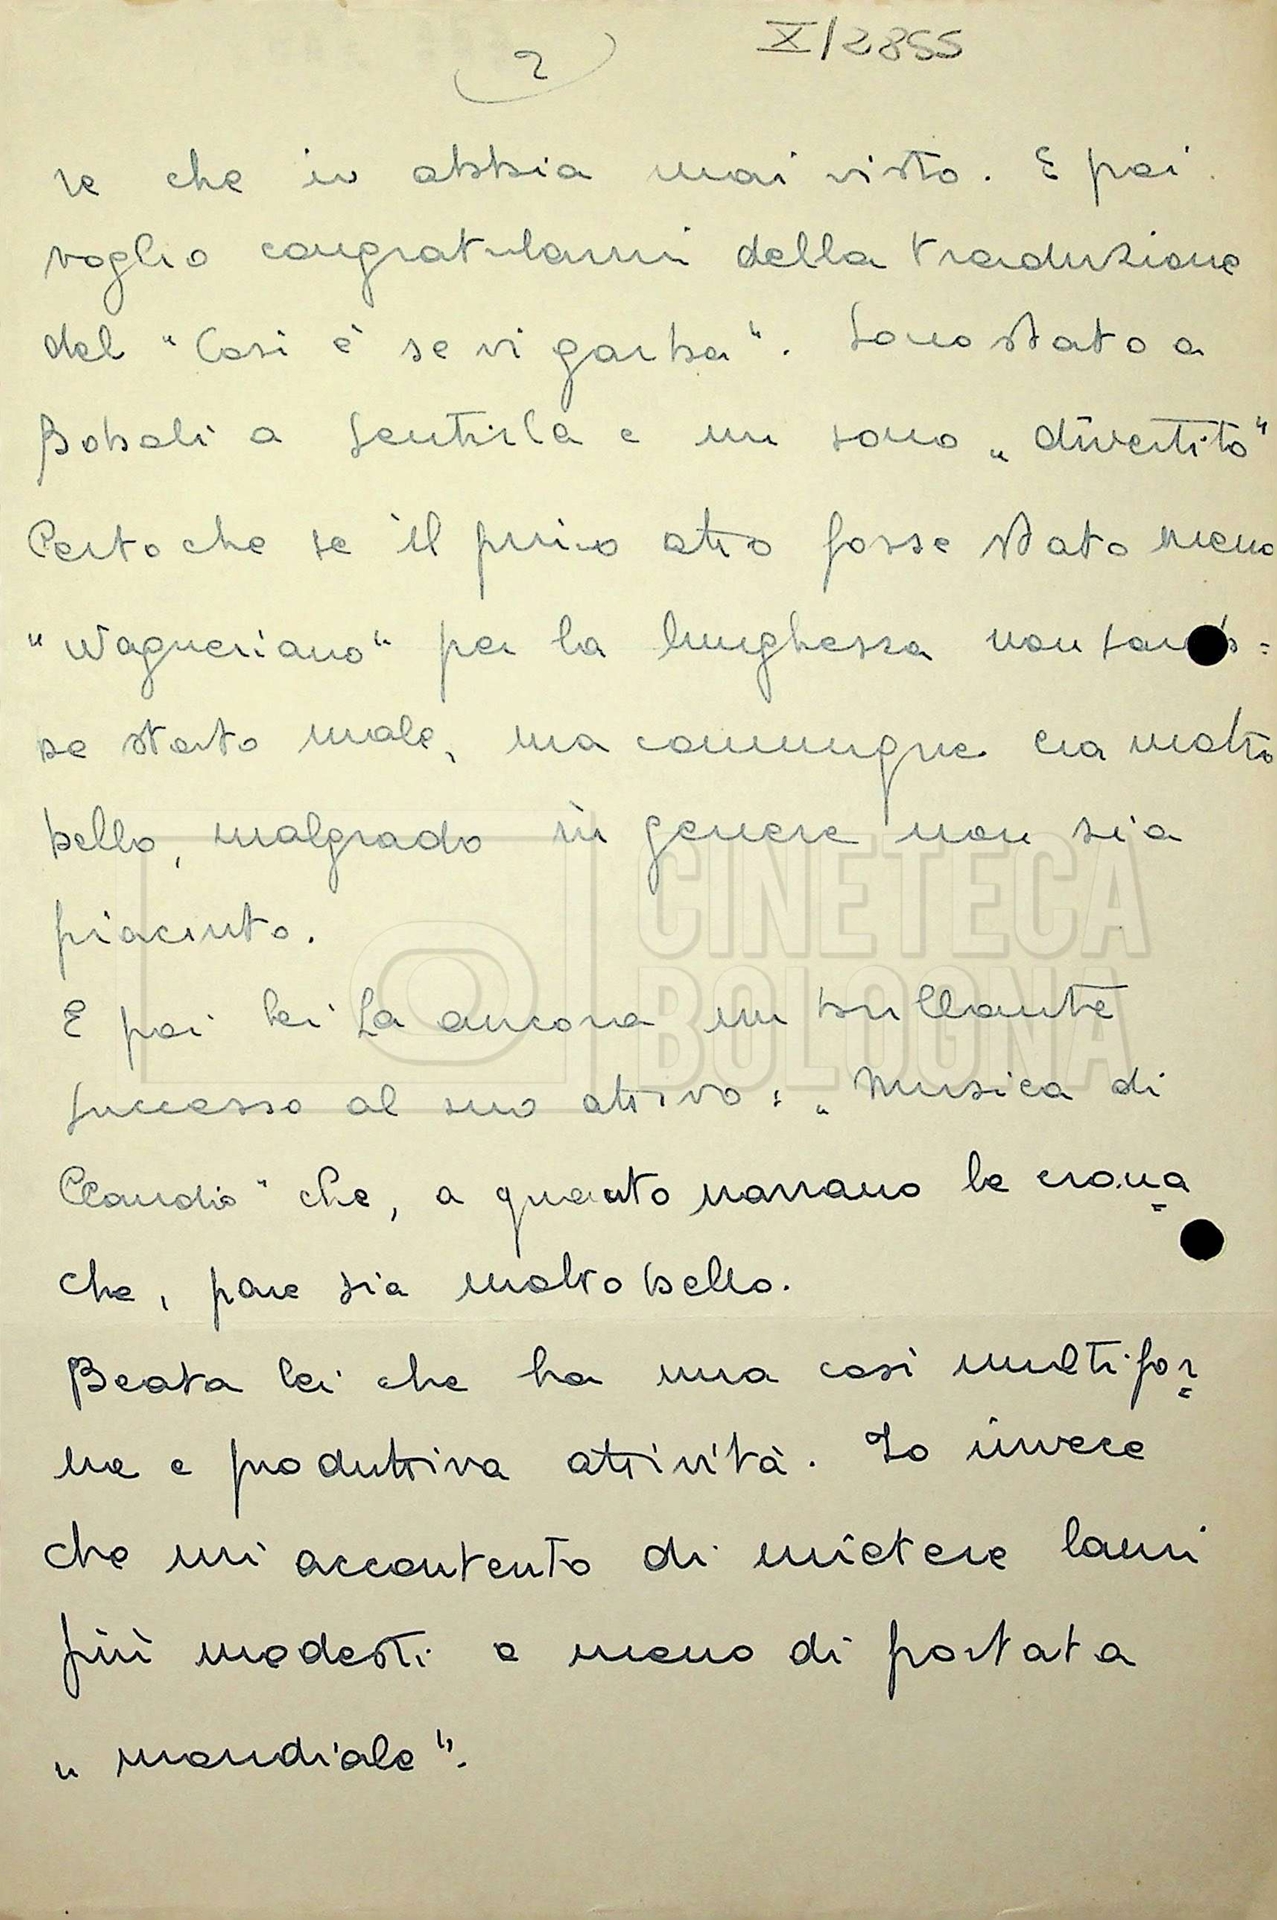 2
X/2855
re che io abbia mai visto. E poi
voglio congratularmi della traduzione
del "Così è se vi garba". Sono stato a
Boboli a sentirla e mi sono "divertito"
Certo che se il primo atto fosse stato meno
"Wagneriano" per la lunghezza non sareb=
be stato male, ma comunque era molto
bello, malgrado in genere non sia
piaciuto.
E poi lei ha ancora un brillante
successo al suo attivo: "Musica di
Claudio" che, a quanto narrano le crona=
che, pare sia molto bello.
Beata lei che ha una così multifor=
me e produttiva attività. Io invece
che mi accontento di mietere lauri
più modesti e meno di portata
"mondiale".
CINETECA
BOLOGNA